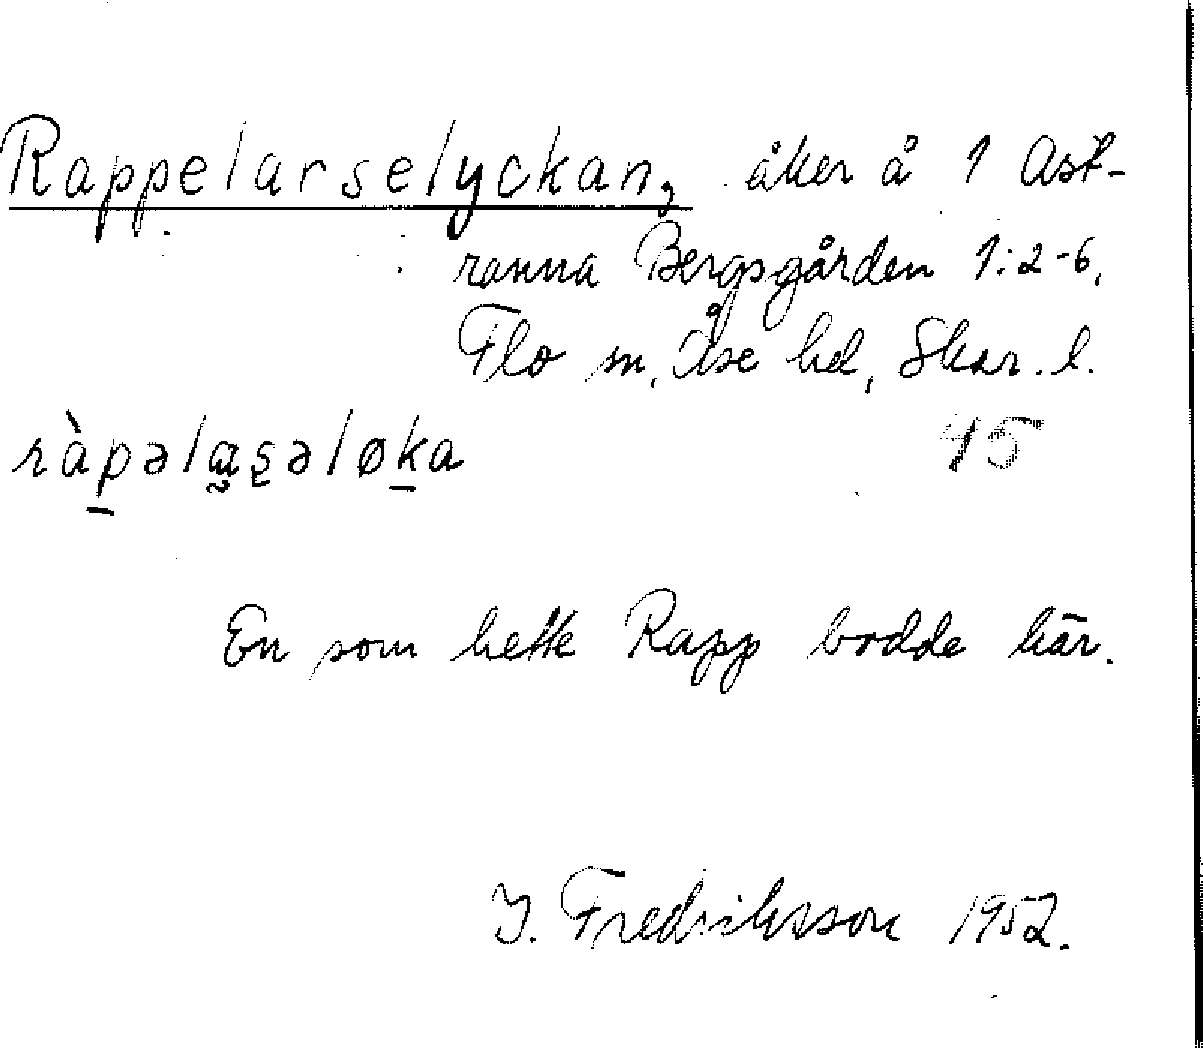 Rappelarselyckan, åker å 1 Ast-
ranna Bergsgården 1:2-6,
Flo sn, Åse hd, Skar. l.
ràpəlaʂəløka 45
En som hette Rapp bodde här.
I. Fredriksson 1952.